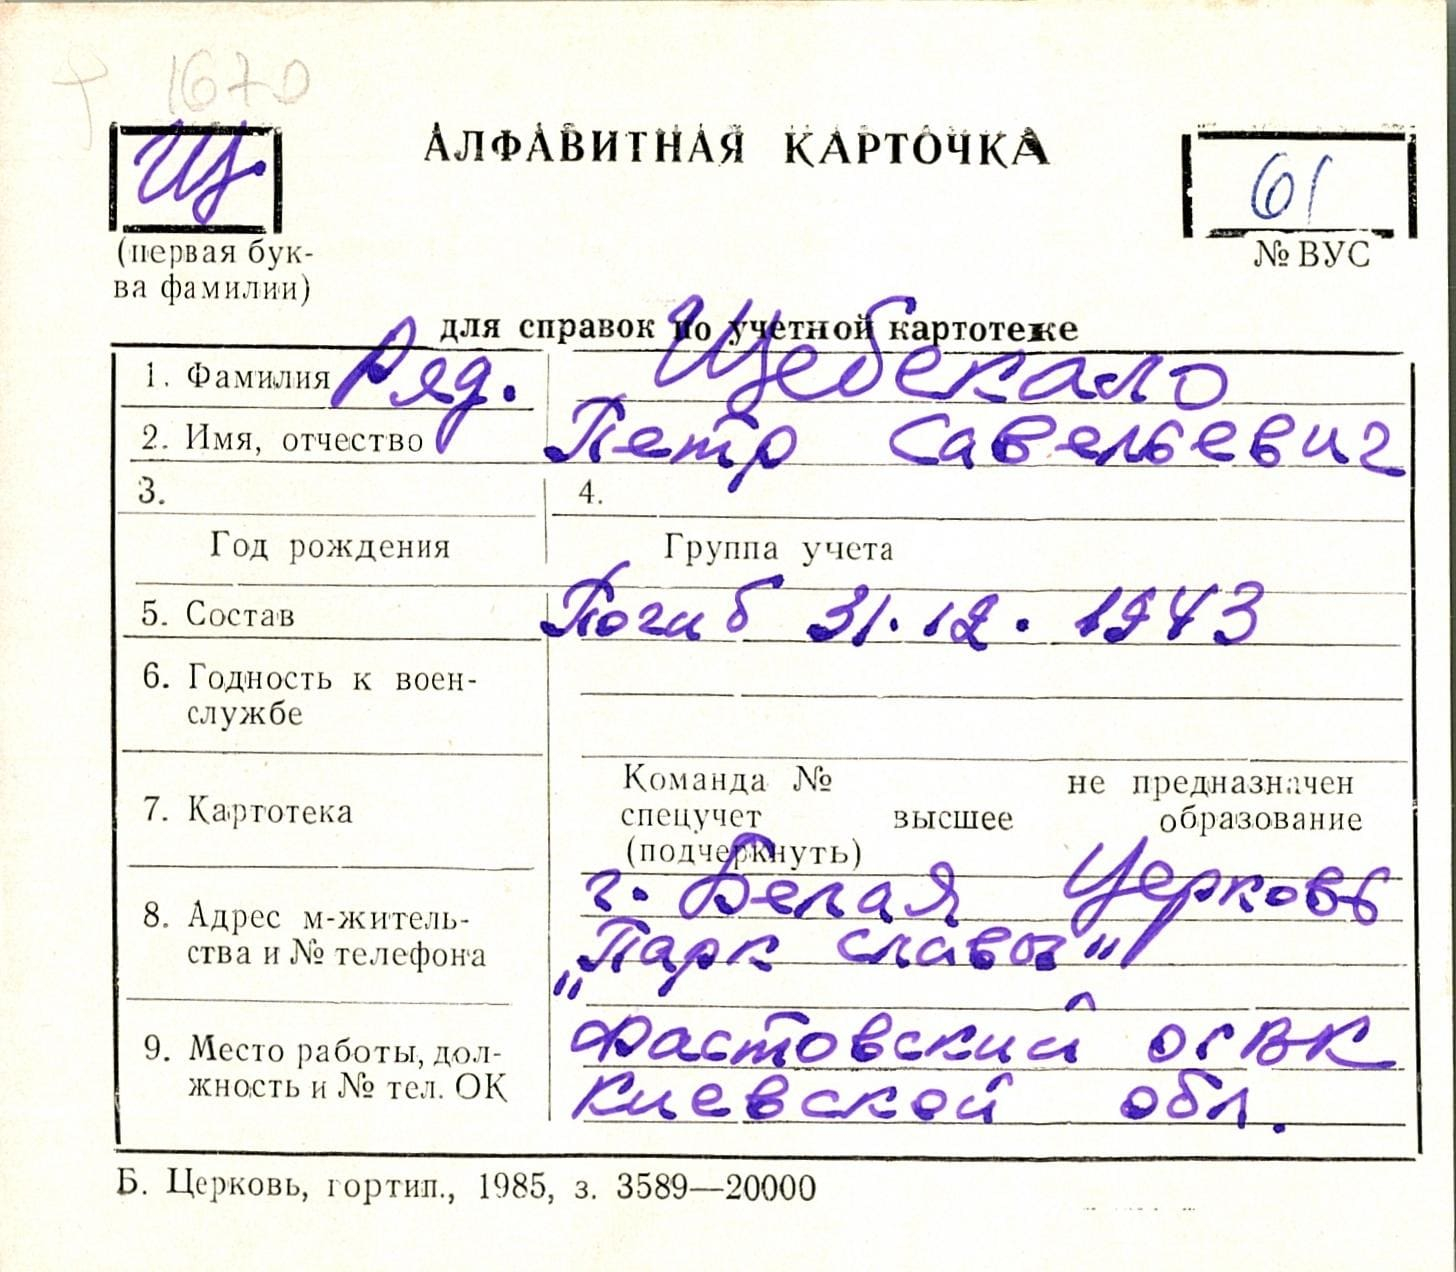 1670
АЛФАВИТНАЯ КАРТОЧКА
Щ.
61
(первая бук-
ва фамилии)
№ ВУС
для справок по учетной картотеке
1. Фамилия Ряд. Щебекало
2. Имя, отчество Петр Савельевич
3. 4.
Год рождения Группа учета
5. Состав Погиб 31.12.1943
6. Годность к воен-
службе
7. Картотека
Команда № не предназначен
спецучет высшее образование
(подчеркнуть)
8. Адрес м-житель-
ства и № телефона
г. Белая Церковь
"Парк славы"
9. Место работы, дол-
жность и № тел. ОК
Фастовский ОГВК
Киевской обл.
Б. Церковь, гортип., 1985, з. 3589—20000